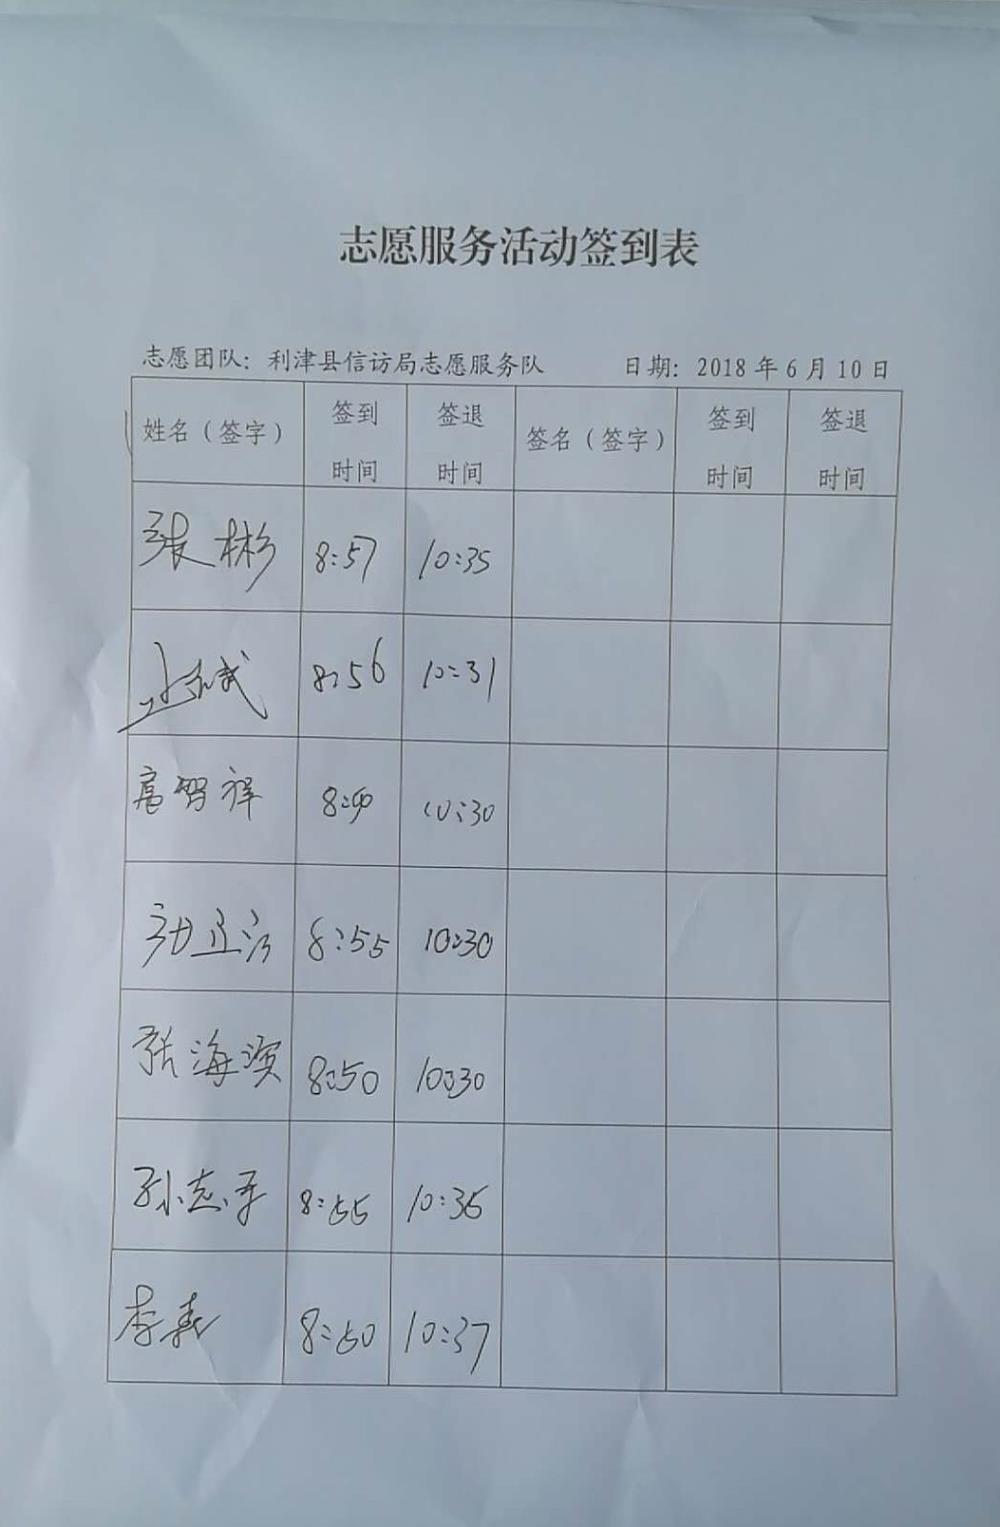 志愿服务活动签到表
志愿团队：利津县信访局志愿服务队 日期：2018年6月10日
姓名（签字） 签到时间 签退时间 签名（签字） 签到时间 签退时间
张彬 8:57 10:35
8:56 10:31
高智祥 10:30
8:55 10:30
张海滨 8:50 10:30
孙志平 8:55 10:35
李春 8:50 10:37